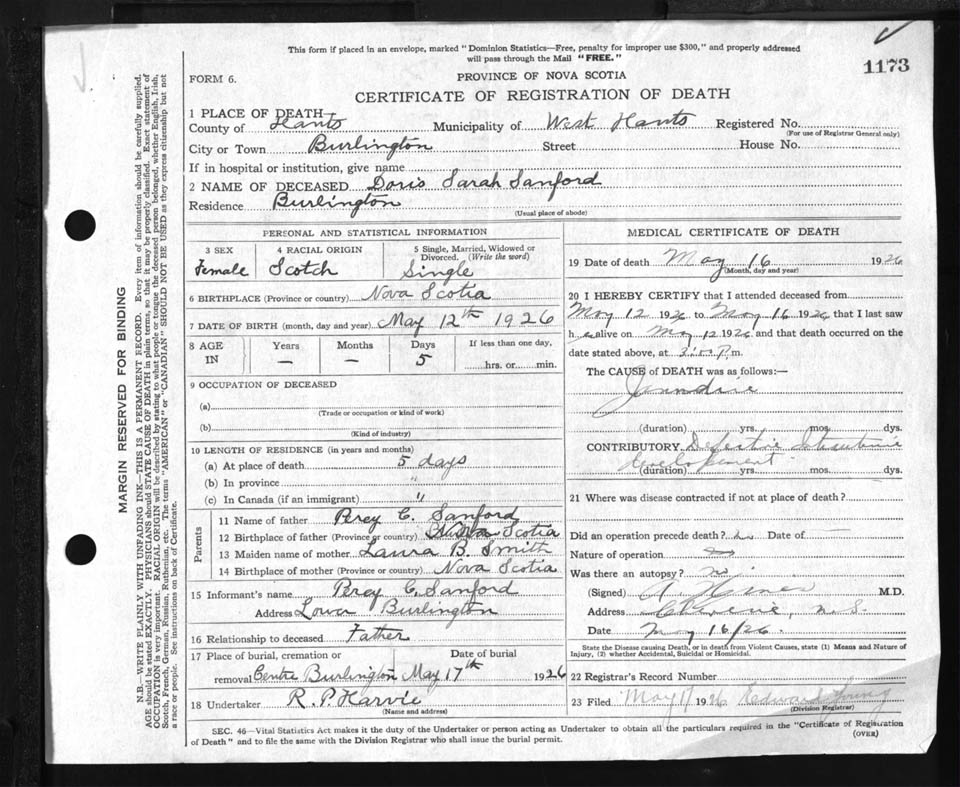 This form if placed in an envelope, marked "Dominion Statistics—Free, penalty for improper use $300," and properly addressed
will pass through the Mail "FREE."
1173
FORM 6.
PROVINCE OF NOVA SCOTIA
CERTIFICATE OF REGISTRATION OF DEATH
1 PLACE OF DEATH
County of Hants Municipality of West Hants Registered No.
(For use of Registrar General only)
City or Town Burlington Street House No.
If in hospital or institution, give name
2 NAME OF DECEASED Doris Sarah Sanford
Residence Burlington
(Usual place of abode)
PERSONAL AND STATISTICAL INFORMATION
3 SEX 4 RACIAL ORIGIN 5 Single, Married, Widowed or
Divorced. (Write the word)
Female Scotch Single
6 BIRTHPLACE (Province or country) Nova Scotia
7 DATE OF BIRTH (month, day and year) May 12th 1926
8 AGE Years Months Days If less than one day,
IN — — 5 hrs. or min.
9 OCCUPATION OF DECEASED
(a)
(Trade or occupation or kind of work)
(b)
(Kind of industry)
10 LENGTH OF RESIDENCE (in years and months)
(a) At place of death 5 days
(b) In province "
(c) In Canada (if an immigrant) "
Parents
11 Name of father Percy C. Sanford
12 Birthplace of father (Province or country) Nova Scotia
13 Maiden name of mother Laura B. Smith
14 Birthplace of mother (Province or country) Nova Scotia
15 Informant's name Percy C. Sanford
Address Lower Burlington
16 Relationship to deceased Father
17 Place of burial, cremation or Date of burial
removal Centre Burlington May 17th 1926
18 Undertaker R. P. Harvie
(Name and address)
MEDICAL CERTIFICATE OF DEATH
19 Date of death May 16 1926
(Month, day and year)
20 I HEREBY CERTIFY that I attended deceased from
May 12 1926 to May 16 1926, that I last saw
h e alive on May 12 1926 and that death occurred on the
date stated above, at 3:00 P.m.
The CAUSE of DEATH was as follows:—
Jaundice
(duration) yrs. mos. dys.
CONTRIBUTORY Defective
development
(duration) yrs. mos. dys.
21 Where was disease contracted if not at place of death?
Did an operation precede death? no Date of —
Nature of operation
Was there an autopsy? no
(Signed) M.D.
Address N.S.
Date May 16/26.
State the Disease causing Death, or in death from Violent Causes, state (1) Means and Nature of
Injury, (2) whether Accidental, Suicidal or Homicidal.
22 Registrar's Record Number
23 Filed May 17 1926 Edward Young
(Division Registrar)
SEC. 46—Vital Statistics Act makes it the duty of the Undertaker or person acting as Undertaker to obtain all the particulars required in the "Certificate of Registration
of Death" and to file the same with the Division Registrar who shall issue the burial permit.
(OVER)
MARGIN RESERVED FOR BINDING
N.B.—WRITE PLAINLY WITH UNFADING INK—THIS IS A PERMANENT RECORD. Every item of information should be carefully supplied.
AGE should be stated EXACTLY. PHYSICIANS should STATE CAUSE OF DEATH in plain terms, so that it may be properly classified. Exact statement of
OCCUPATION is very important. RACIAL ORIGIN will be described by stating to what people or tongue the deceased person belonged, whether English, Irish,
Scotch, French, German, Russian, Ruthenian, etc. The terms "AMERICAN" or "CANADIAN" SHOULD NOT BE USED as they express citizenship but not
a race or people. See instructions on back of Certificate.